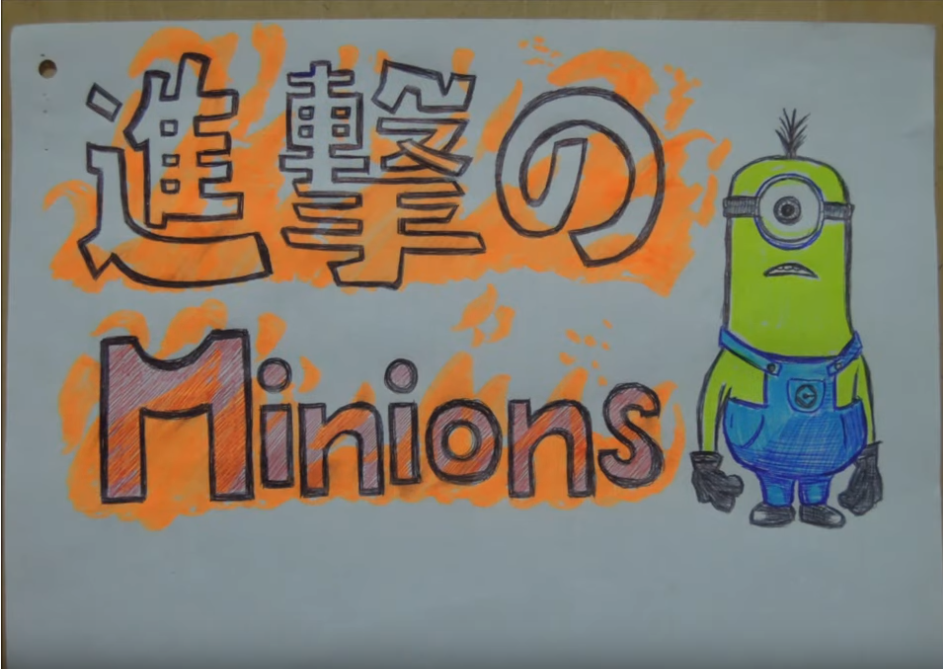 進撃の
Minions